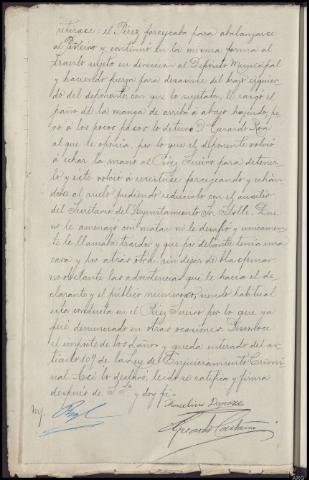 retirase: el Pérez forcejeaba para abalanzarse
al Portero y continuó en la misma forma al
traerlo sujeto en dirección al Depósito Municipal
y haciendo fuerza para desasirse del brazo izquier-
do del deponente con que lo sujetaba, le rasgó el
paño de la manga de arriba a abajo
a los pocos pasos lo detuvo D. Gerardo
al que le por lo que el deponente volvió
a echar la mano al Pérez para detener-
lo y este volvió a resistirse forcejeando y echán-
dose al suelo pudiendo reducirlo con el auxilio
del Secretario del Ayuntamiento Sr. Que
no le amenazó con matar ni le desafió y unicamen-
te le llamaba traidor y que por delante tenia una
cara y por atras otra, sin dejar de blasfemar
no obstante las advertencias que le hacia el de-
clarante y el público reunido, siendo habitual
esta conducta en el Pérez por lo que ya
fué denunciado en otras ocasiones. Desconoce
el importe de los daños y queda enterado del ar-
tículo 109 de la Ley de Enjuiciamiento Crimi-
nal. Así lo declaró, leido se ratifica y firma
despues de S. Sª. y doy fe.